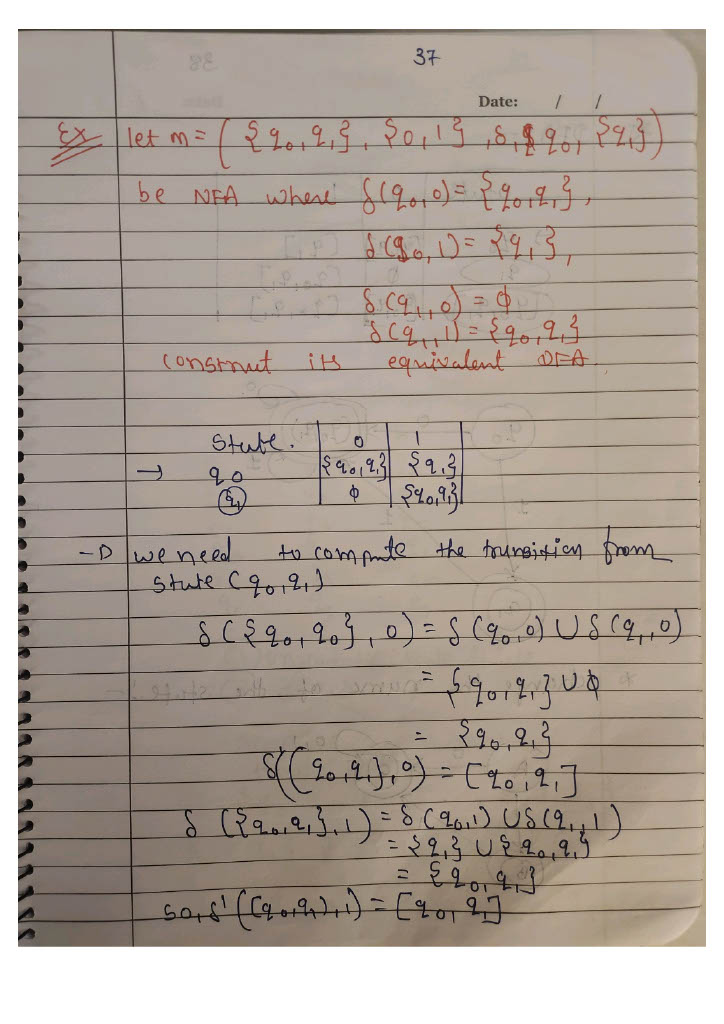 37
Date: / /
Ex let m = ( {q0, q1}, {0, 1}, δ, q0, {q1})
be NFA where δ(q0, 0) = {q0, q1},
δ(q0, 1) = {q1},
δ(q1, 0) = ϕ
δ(q1, 1) = {q0, q1}
construct its equivalent DFA
State. 0 1
→ q0 {q0, q1} {q1}
q1 ϕ {q0, q1}
→ we need to compute the transition from
state (q0, q1)
δ({q0, q0}, 0) = δ(q0, 0) ∪ δ(q1, 0)
= {q0, q1} ∪ ϕ
= {q0, q1}
δ'((q0, q1}, 0) = [q0, q1]
δ({q0, q1}, 1) = δ(q0, 1) ∪ δ(q1, 1)
= {q1} ∪ {q0, q1}
= {q0, q1}
so, δ'((q0, q1), 1) = [q0, q1]